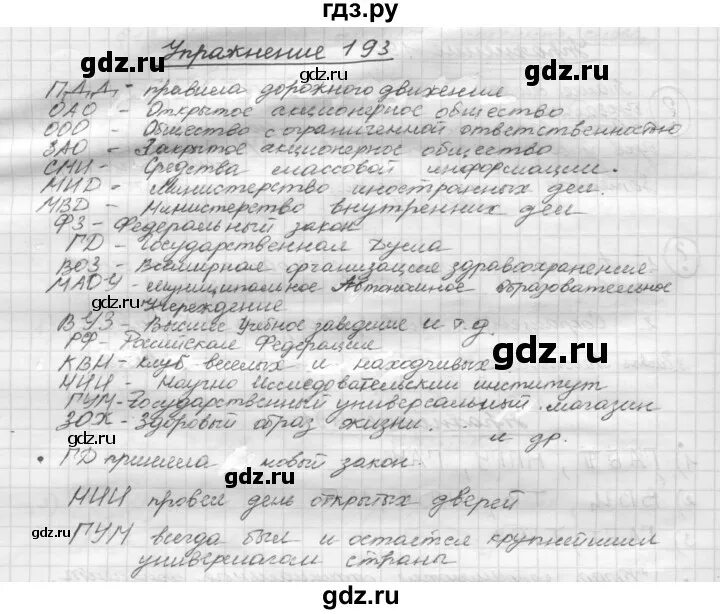 гдз.ру
Упражнение 193
П.Д.Д. - правила дорожного движения
ОАО - Открытое акционерное общество
ООО - Общество с ограниченной ответственностью
ЗАО - Закрытое акционерное общество
СМИ - Средства массовой информации.
МИД - Министерство иностранных дел.
МВД - Министерство внутренних дел
ФЗ - Федеральный закон
ГД - Государственная Дума
ВОЗ - Всемирная организация здравоохранения
МАОУ - муниципальное Автономное образовательное
учереждение
ВУЗ - Высшее учебное заведение и т.д.
РФ - Российская Федерация
КВН - клуб веселых и находчивых
НИИ - Научно Исследовательский институт
ГУМ - Государственный универсальный магазин
ЗОЖ - Здоровый образ жизни.
и др.
• ГД приняла новый закон.
НИИ провел день открытых дверей
ГУМ всегда был и остается крупнейшим
универмагом страны
gdz.ru
gdz.ru
gdz.ru
gdz.ru
gdz.ru
gdz.ru
gdz.ru
gdz.ru
gdz.ru
gdz.ru